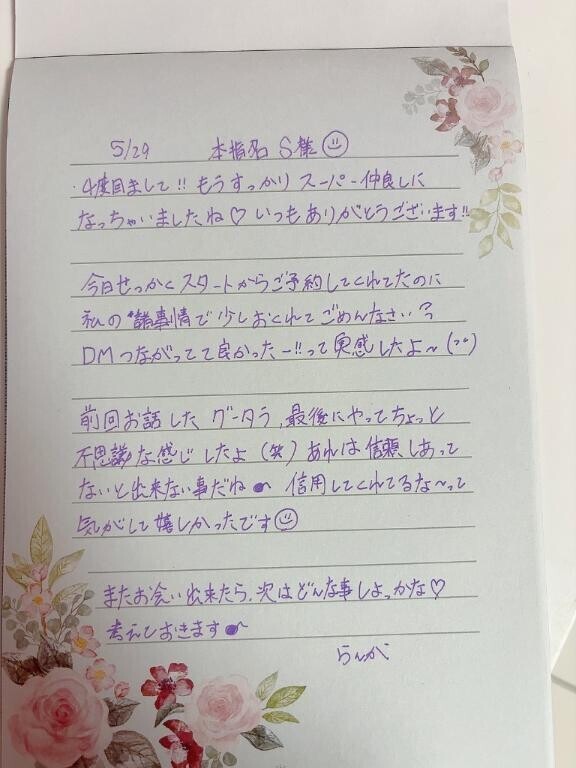 5/29 本指名 S様
・4度目まして!! もうすっかり スーパー仲良しに
なっちゃいましたね♡ いつもありがとうございます!!
今日せっかくスタートからご予約してくれてたのに
私の諸事情で少しおくれてごめんなさい
DMつながってて良かったー!!って実感したよ〜
前回お話した グータラ、最後にやってちょっと
不思議な感じしたよ(笑) あれは信頼しあって
ないと出来ない事だね 信用してくれてるな〜って
気がして嬉しかったです
またお会い出来たら、次はどんな事しよっかな♡
考えておきます
らんか